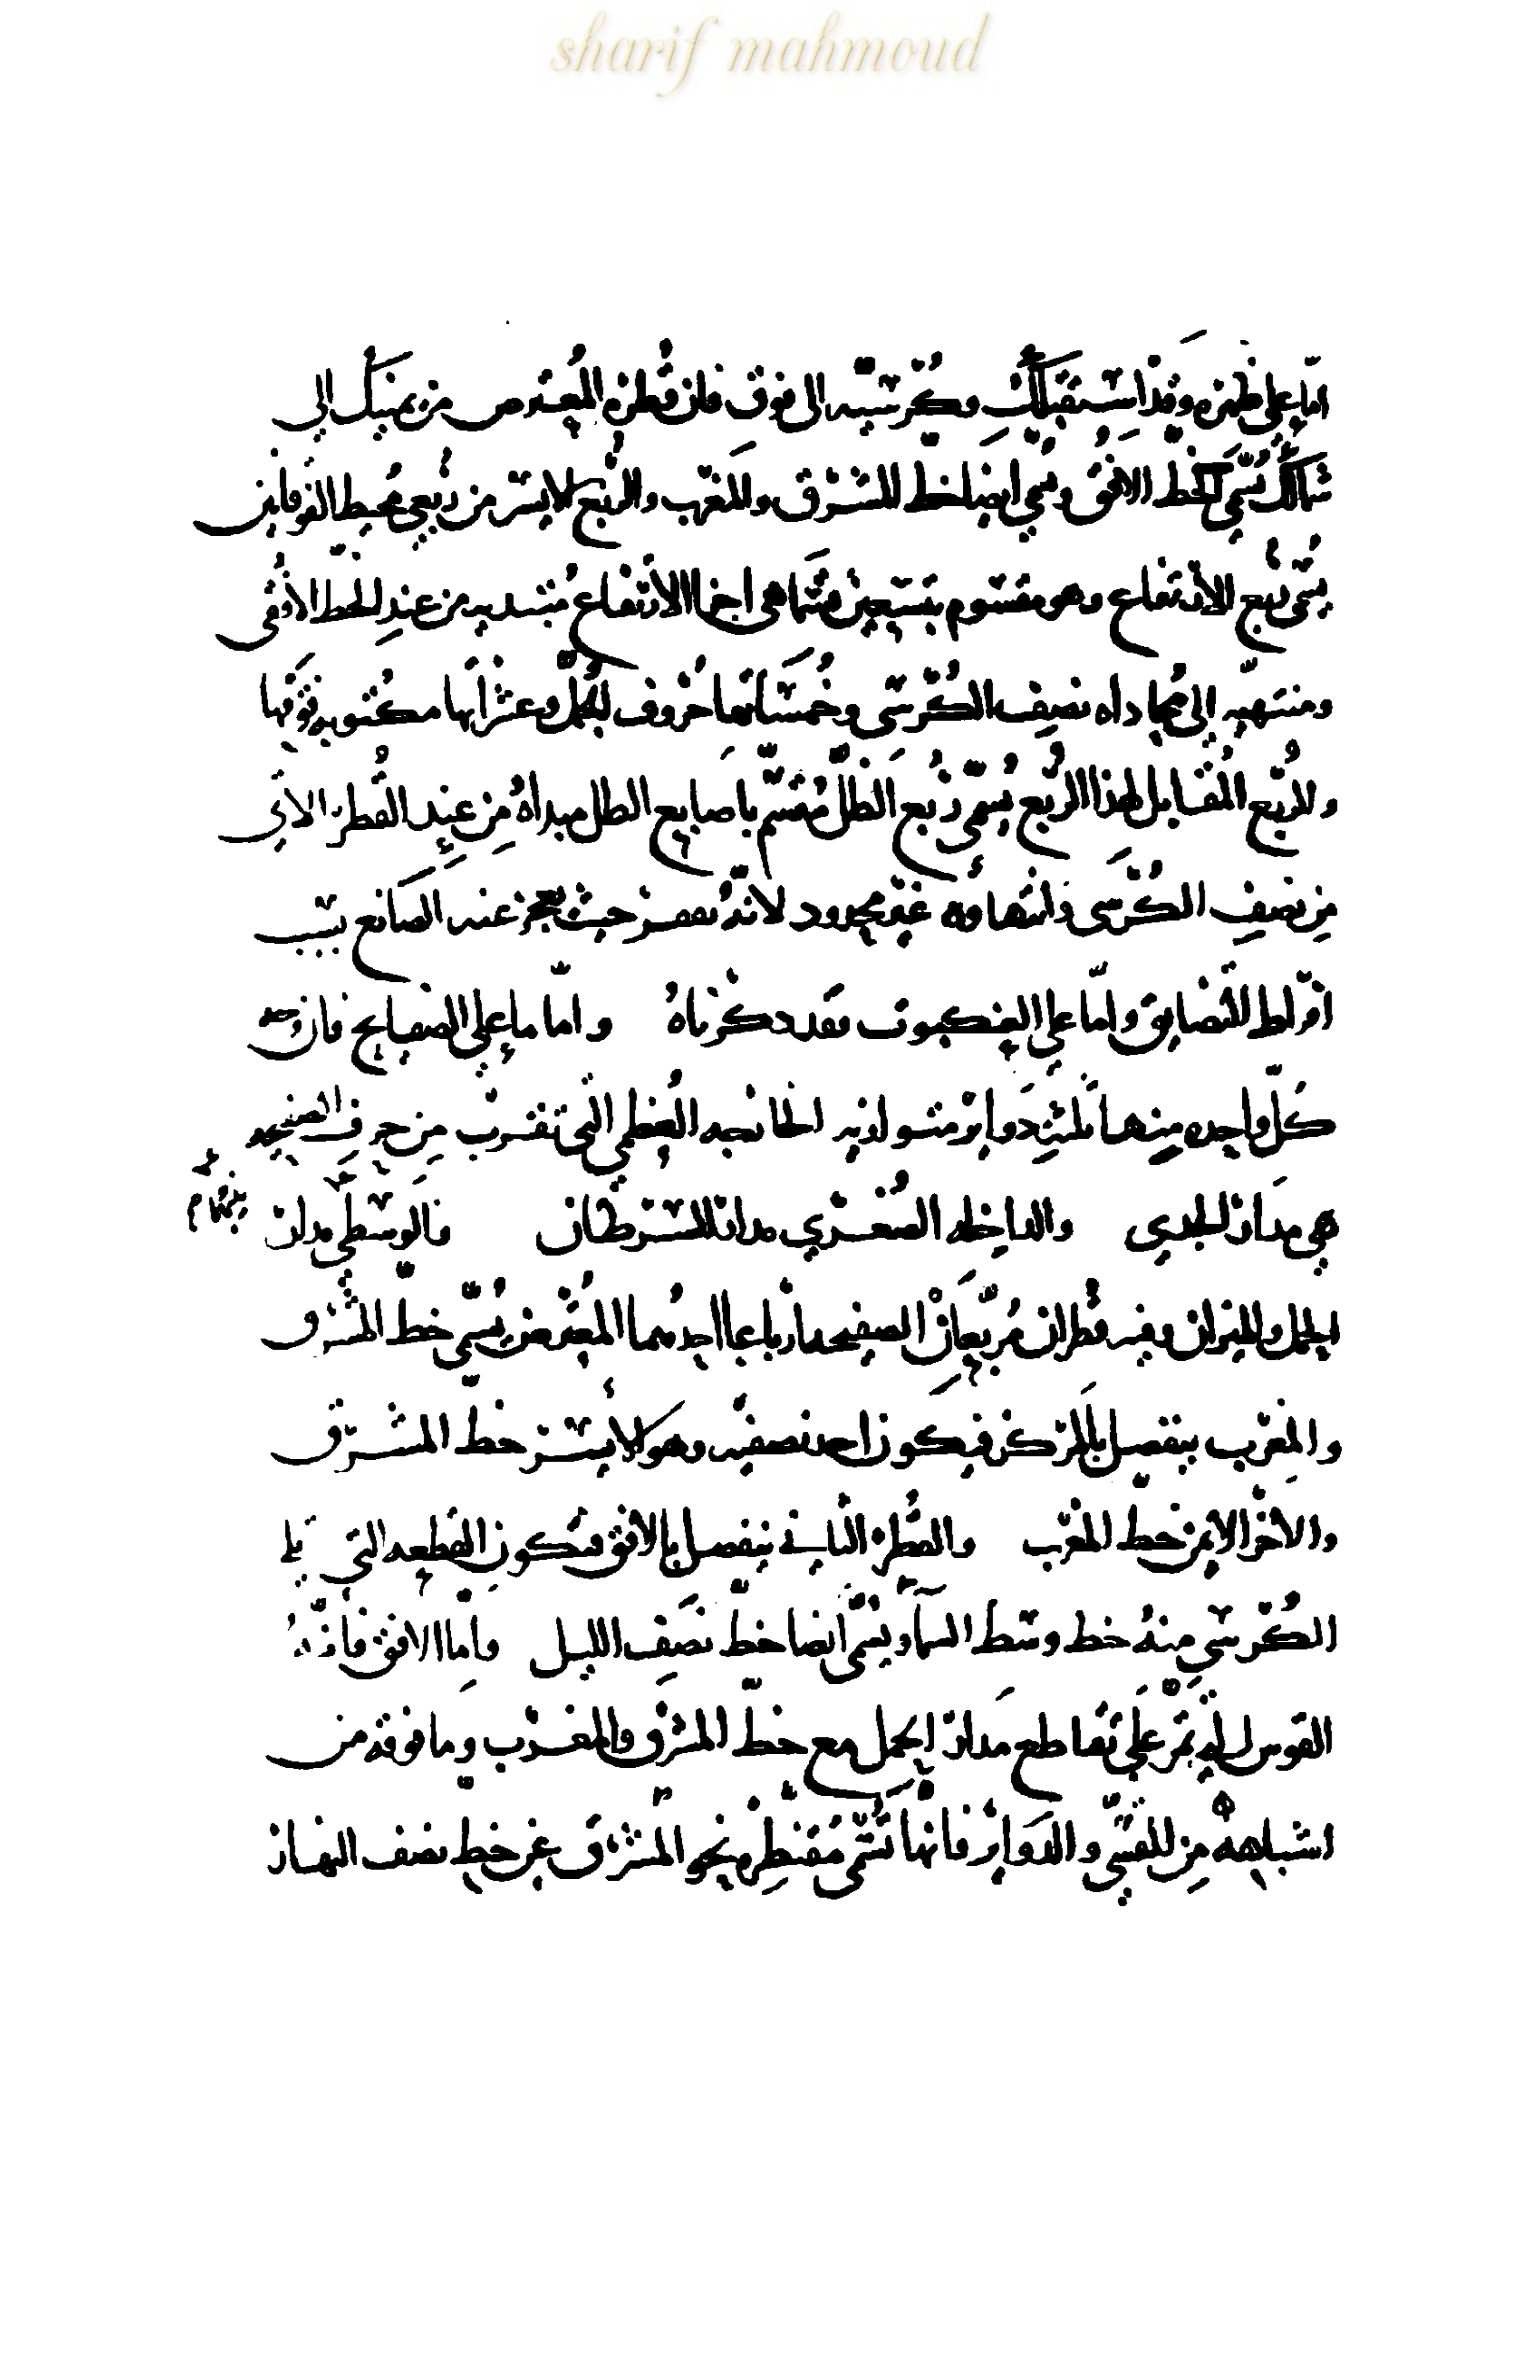 sharif mahmoud
اما على ظهره وقد استقبلك وكرسيه الى فوق فان قطره المعترض من يمينك الى
شمالك يسمى خط الافق ويسمى ايضا خط المشرق والمغرب والربع الايسر من ربعي محيط الفوقاني
يسمى ربع الارتفاع وهو مقسوم بتسعين قسما هى اجزا الارتفاع مبتديه من عند الخط الافقى
ومنتهيه الى محاداه نصف الكرسى وخمساتها حروف الجمل وعشراتها مكتوبه فوقها
والربع المقابل لهذا الربع يسمى ربع الظل مقسم باصابع الظل مبداه من عند القطر الاتى
من نصف الكرسى وانتهاوه غير محدود لانه يقف حيث يعجز عنه الصانع بسبب
افراط التضايق واما على العنكبوت فقد ذكرناه واما ما على الصفايح فان وجه
كل واحده منها ثلث دواير متوازيه الخارجه العظمى التى تقرب من حرف الصفيحه
هي مدار الجدي والداخله الصغري مدار السرطان والوسطى مدار
الحمل والميزان وفيه قطران يربعان الصفيحه ارباعا احدهما المعترض يسمى خط المشرق
والمغرب ينفصل بالمركز فيكون احد نصفيه وهو الايسر خط المشرق
والاخر الايمن خط المغرب والقطر الثاني ينفصل بالافق فتكون القطعه التي تلي
الكرسي منه خط وسط السماء ويسمى ايضا خط نصف الليل واما الافق فانه
القوس الذي تمر على تقاطع مدار الحمل مع خط المشرق والمغرب وما فوقه من
اشباهه من القسي والدواير فانها تسمى مقنطره نحو المشرق عن خط نصف النهار